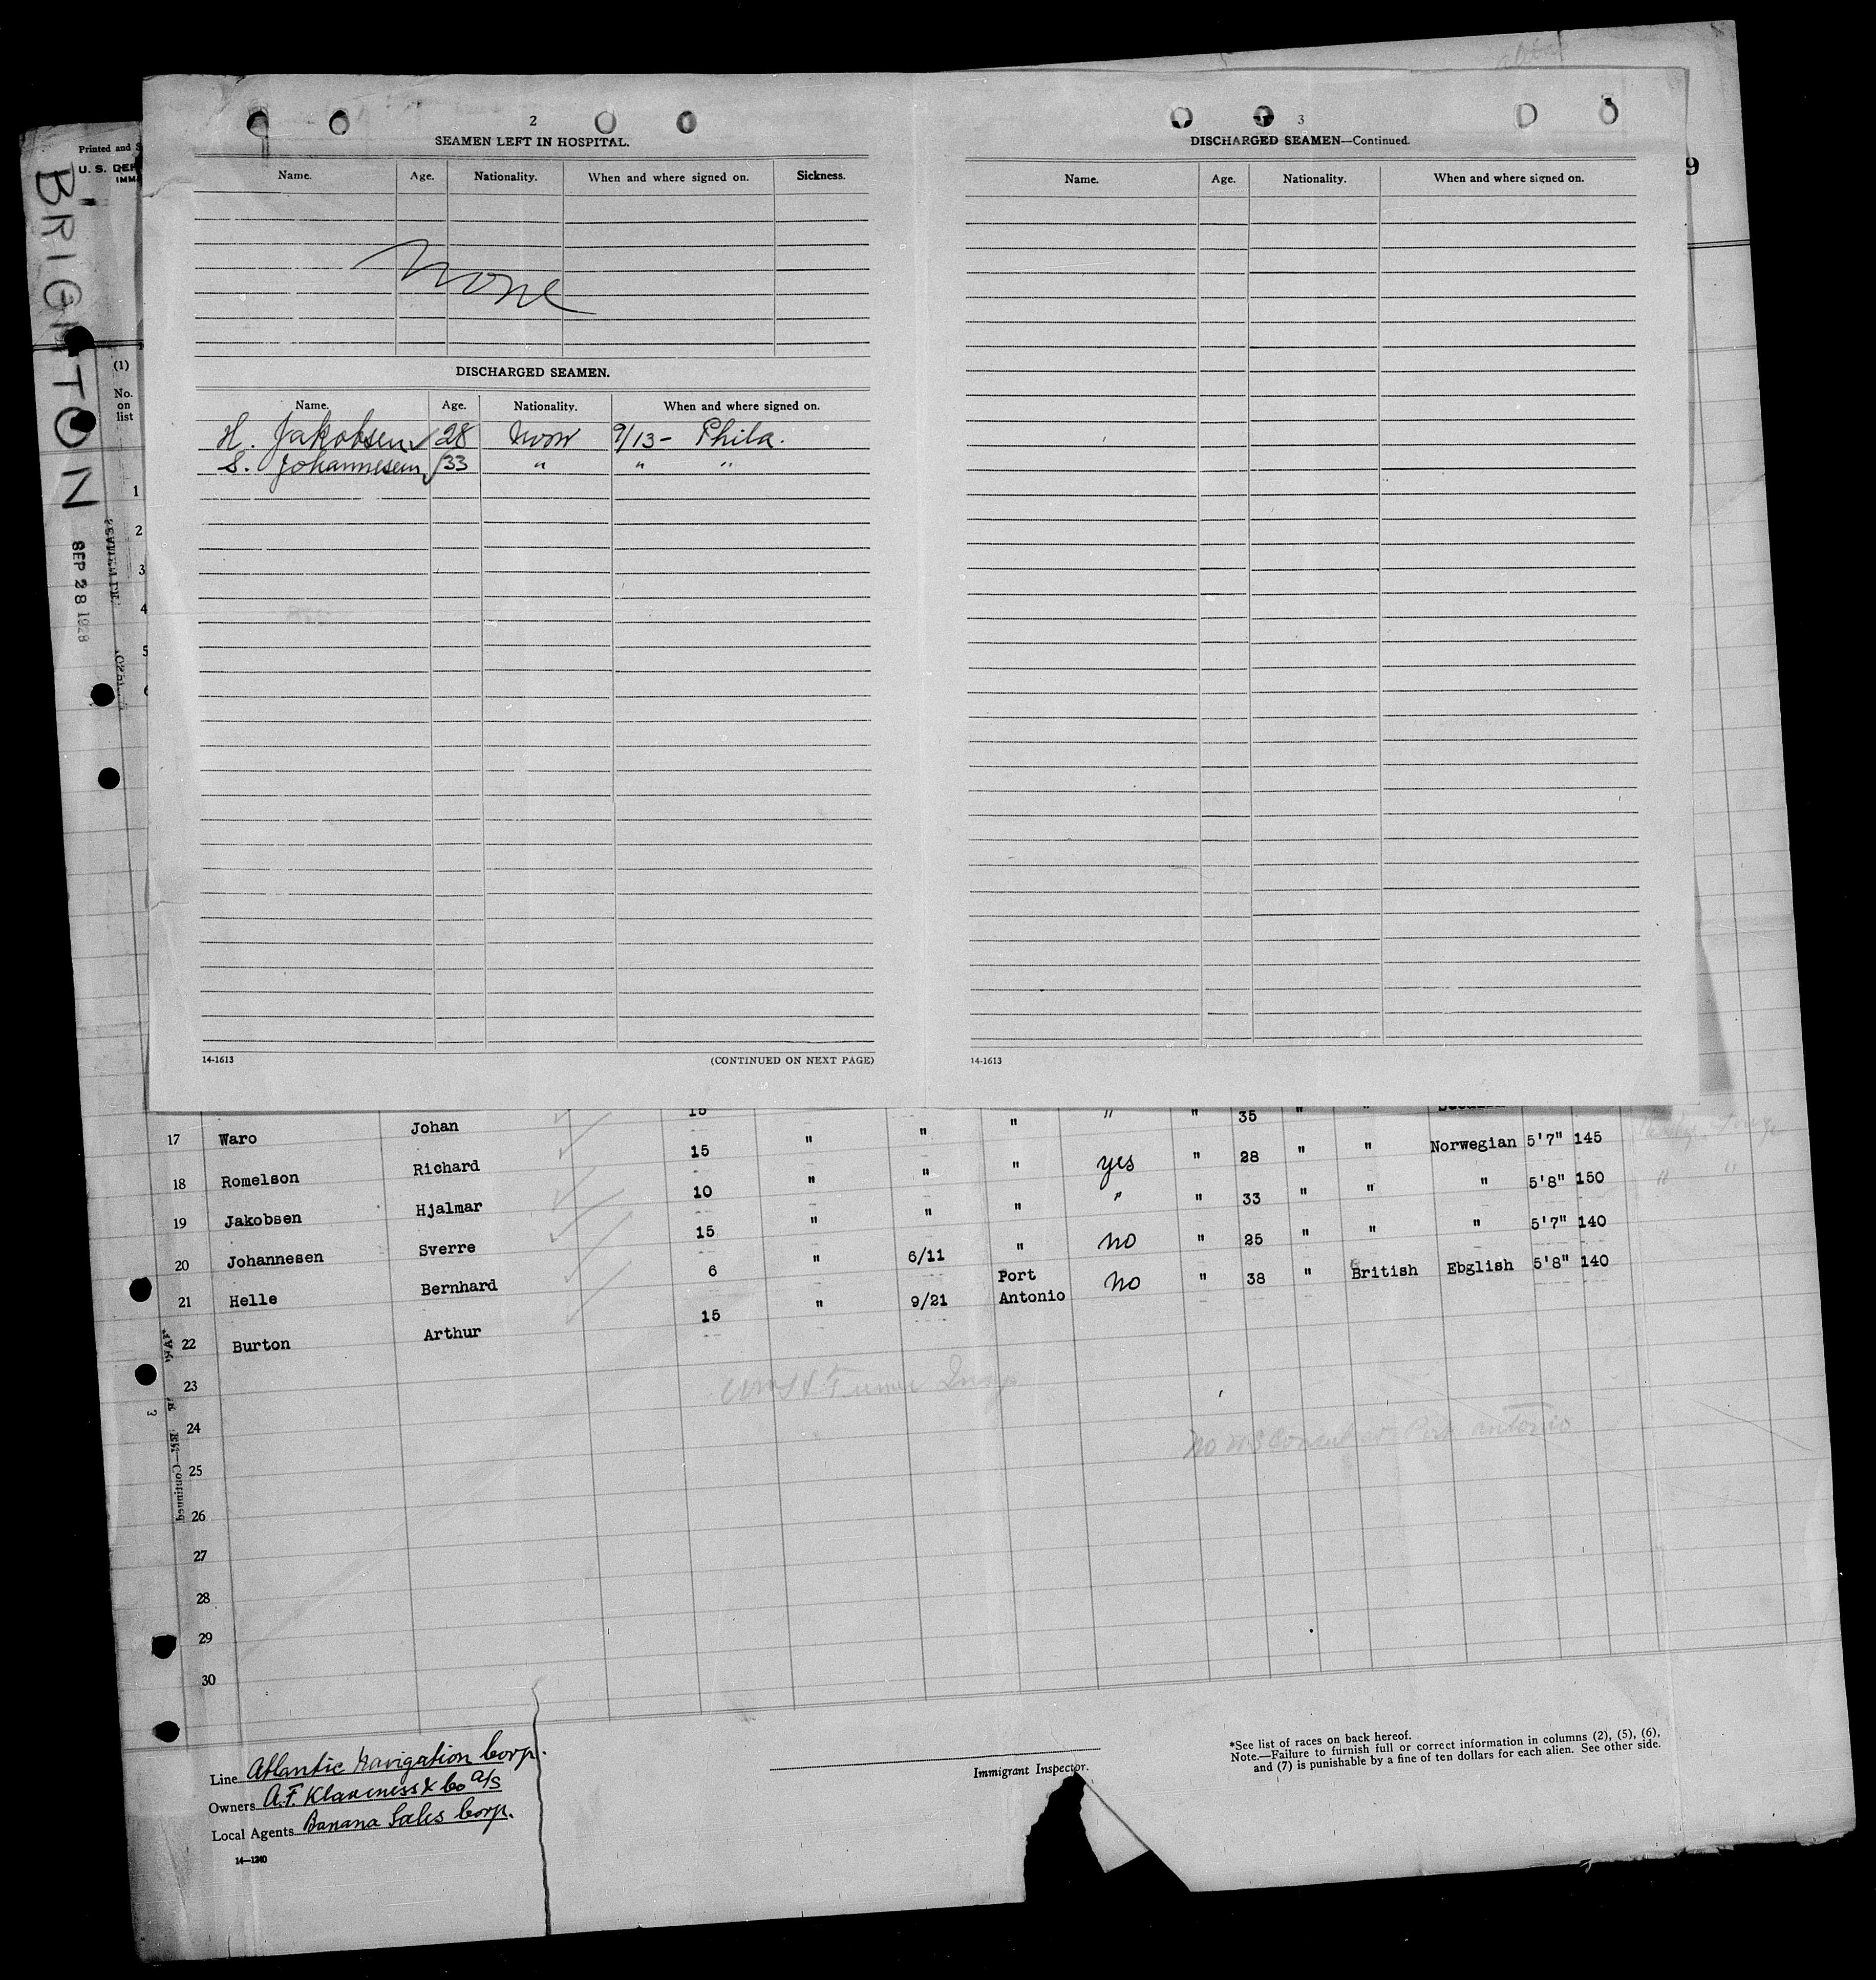 2
SEAMEN LEFT IN HOSPITAL.
Name. Age. Nationality. When and where signed on. Sickness.
None
DISCHARGED SEAMEN.
Name. Age. Nationality. When and where signed on.
H. Jakobsen 28 Norw 9/13- Phila.
S. Johannesen 33 " " "
14-1613 (CONTINUED ON NEXT PAGE)
3
DISCHARGED SEAMEN—Continued.
Name. Age. Nationality. When and where signed on.
14-1613
9
Printed and S
U. S. DEP
IMM
BRIGHTON
SEP 28 1928
(1)
No.
on
list
1
2
3
4
5
6
15 " " 35 " "
17 Waro Johan 15 " " " yes " 28 " " Norwegian 5'7" 145
18 Romelson Richard 10 " " " " " 33 " " " 5'8" 150
19 Jakobsen Hjalmar 15 " " " no " 25 " " " 5'7" 140
20 Johannesen Sverre 6 " 6/11 Port Antonio no " 38 " British Ebglish 5'8" 140
21 Helle Bernhard 15 " 9/21
22 Burton Arthur
23
24
25
26
27
28
29
30
3
—Continued
Line Atlantic Navigation Corp.
Owners A.F. Klaveness & Co A/S
Local Agents Banana Sales Corp.
14—1240
Immigrant Inspector.
*See list of races on back hereof.
Note.—Failure to furnish full or correct information in columns (2), (5), (6),
and (7) is punishable by a fine of ten dollars for each alien. See other side.